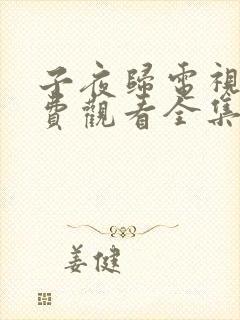 子夜歸電視
費觀看全集
姜健